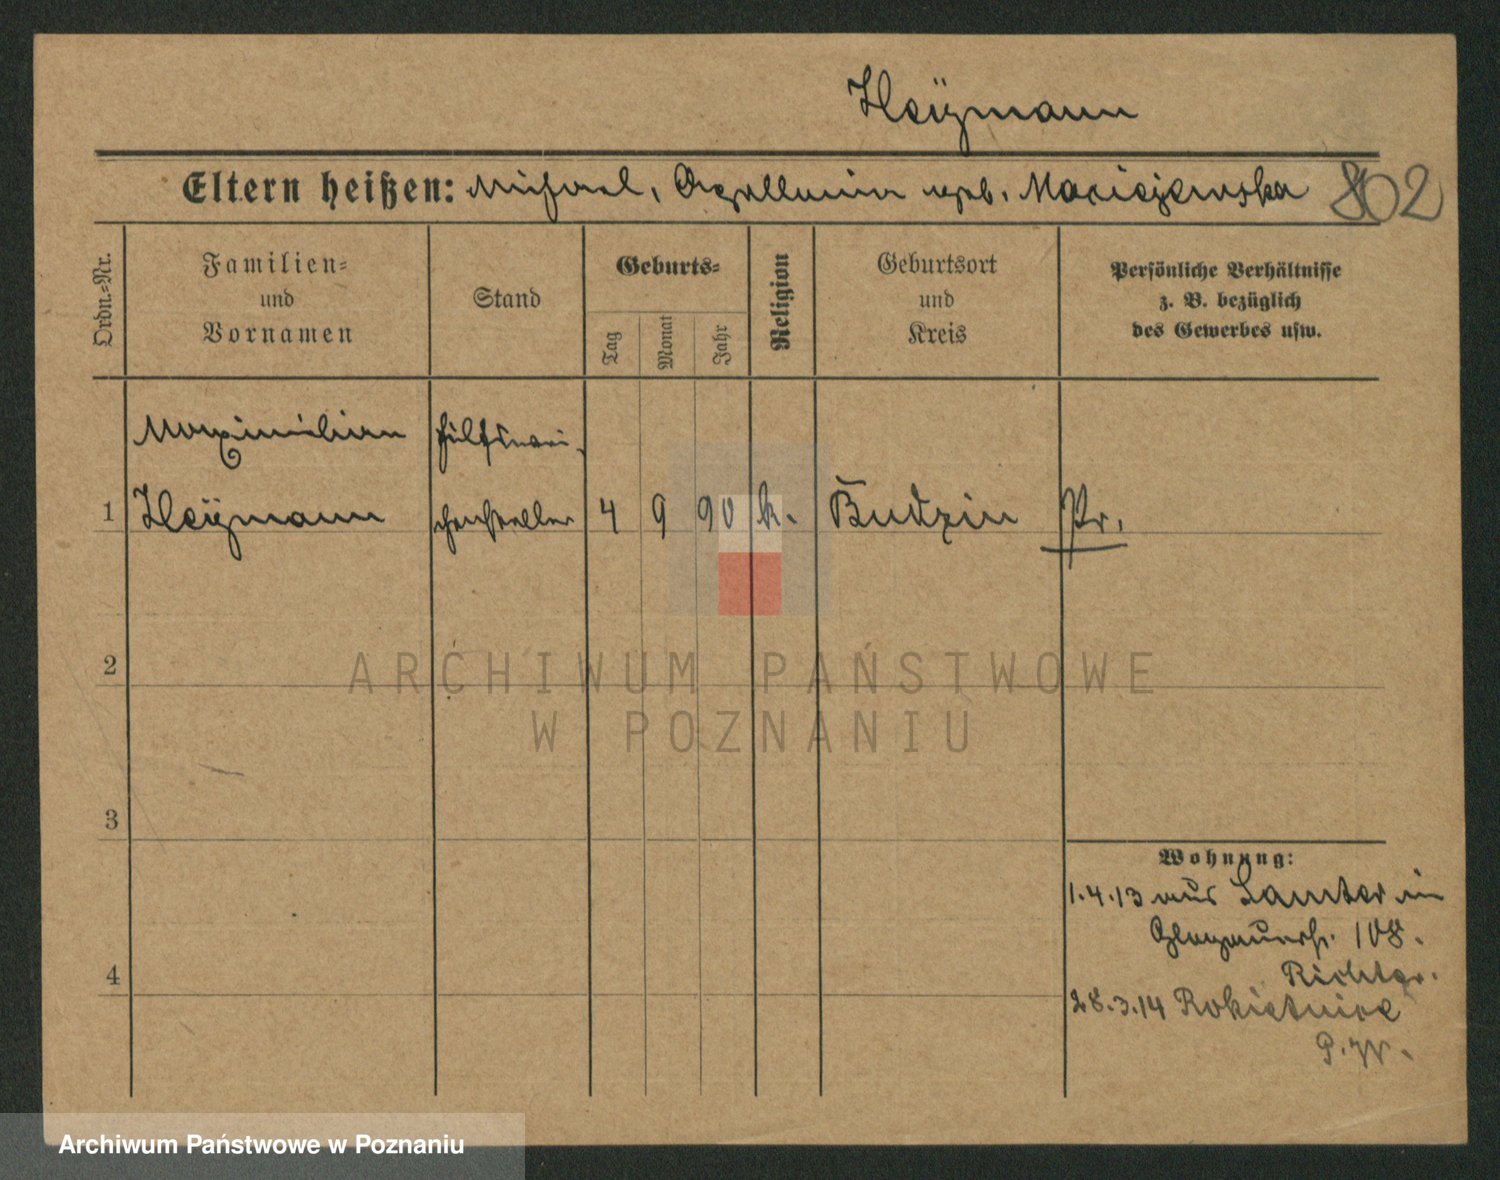 Heÿmann
Eltern heißen: Michael, Apollonia geb. Maciejewska 802
Ordn.=Nr.
Familien=
und
Vornamen
Stand
Geburts=
Tag
Monat
Jahr
Religion
Geburtsort
und
Kreis
Persönliche Verhältnisse
z. B. bezüglich
des Gewerbes usw.
Maximilian Hülfswei-
1 Heÿmann chensteller 4 9 90 k. Budzin Pr.
2
3
4
Wohnung:
1.4.13 aus Samter in
Glogauerstr. 108.
Richter.
28.3.14 Rokietnice
P. W.
ARCHIWUM PAŃSTWOWE
W POZNANIU
Archiwum Państwowe w Poznaniu